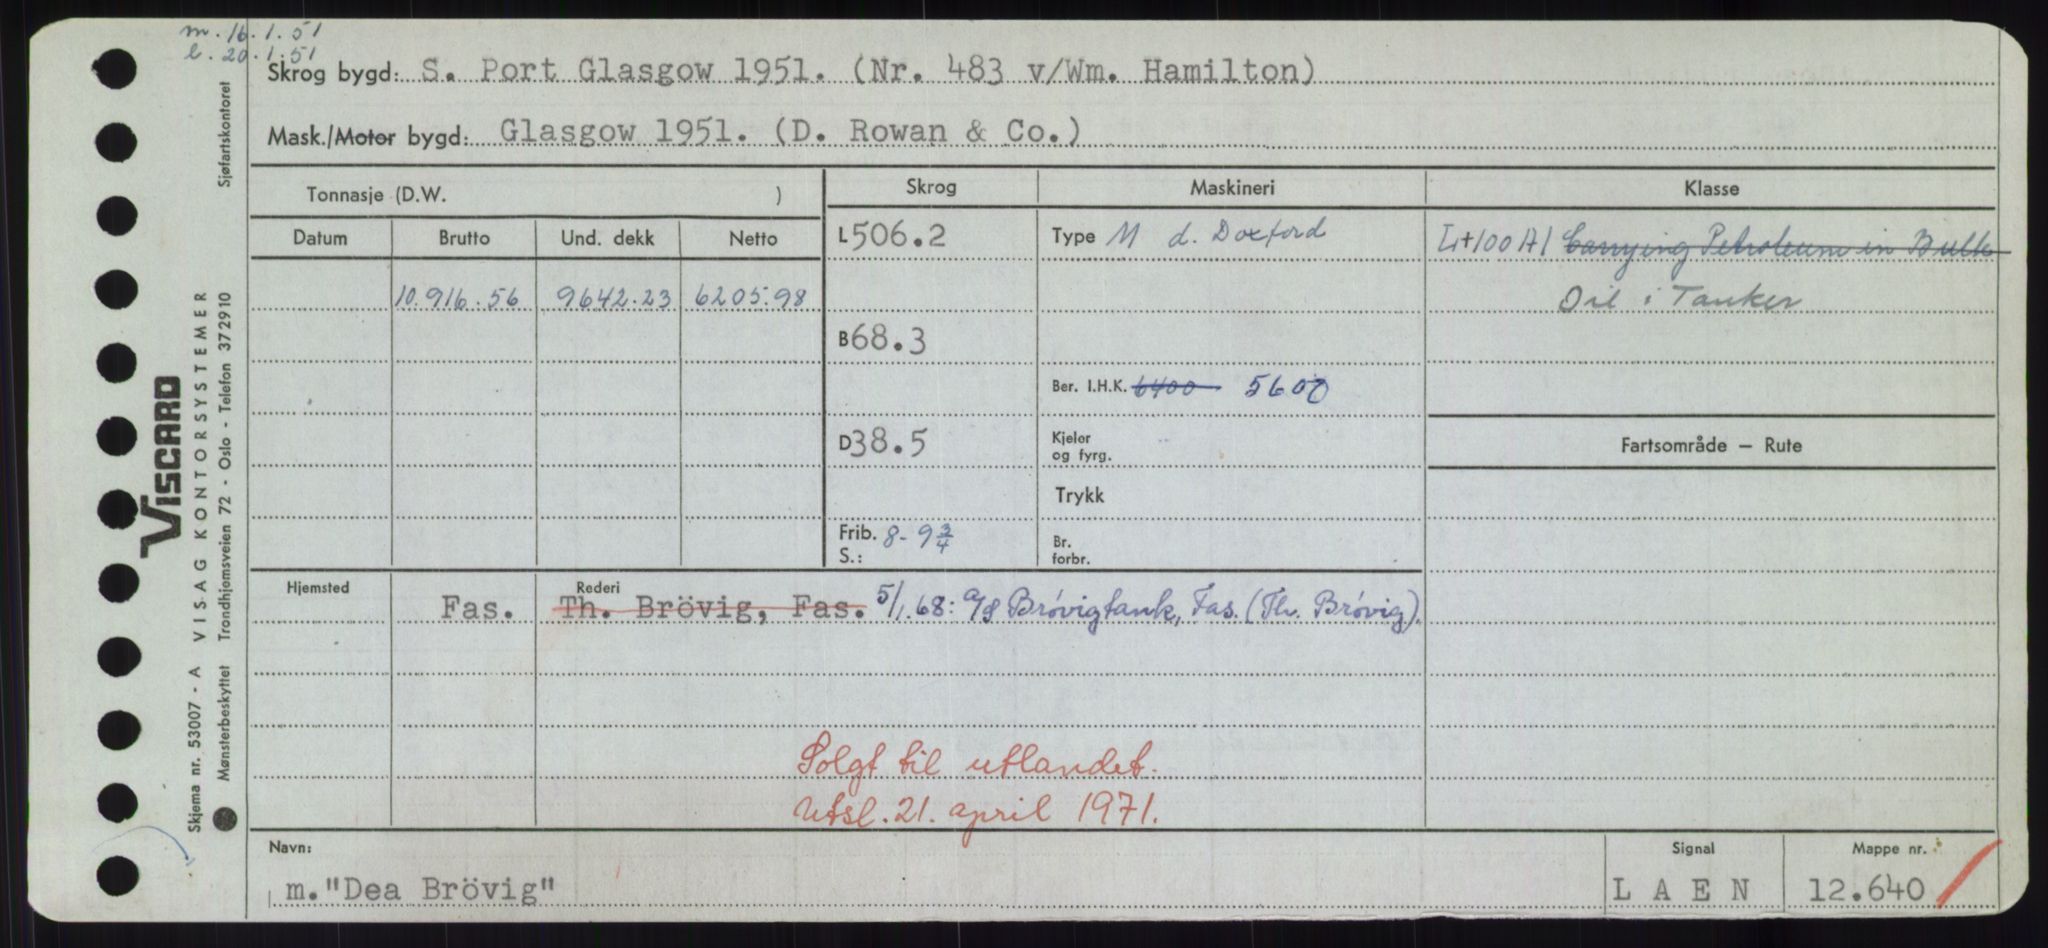 m. 16.1.51
l. 20.1.51
Skrog bygd: S. Port Glasgow 1951. (Nr. 483 v/Wm. Hamilton)
Mask./Motor bygd: Glasgow 1951. (D. Rowan & Co.)
Tonnasje (D.W. )
Datum Brutto Und. dekk Netto
10.916.56 9642.23 6205.98
Skrog
L 506.2
B 68.3
D 38.5
Frib. 8-9 3/4
S.:
Maskineri
Type M d. Doxford
Ber. I.H.K. 6400 5600
Kjeler
og fyrg.
Trykk
Br.
forbr.
Klasse
L+100 A1 Carrying Petroleum in Bulk
Oil Tanker
Fartsområde — Rute
Hjemsted Rederi
Fas. Th. Brövig, Fas. 5/1.68: A/S Brövigtank, Fas. (Th. Brövig).
Solgt til utlandet.
Utsl. 21. april 1971.
Navn: Signal Mappe nr.
m."Dea Brövig" L A E N 12.640
VISCARD
Skjema nr. 53007 - A VISAG KONTORSYSTEMER
Mønsterbeskyttet Trondhjemsveien 72 - Oslo - Telefon 372910 Sjøfartskontoret